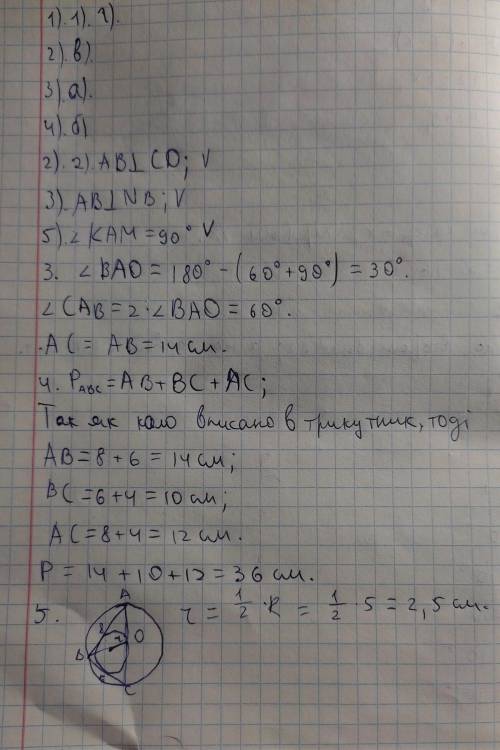 1). 1). г).
2). в).
3). а).
4). б)
2). 2). AB⊥CD; V
3). AB⊥NB; V
5). ∠KAM = 90° V
3. ∠BAO = 180° - (60° + 90°) = 30°.
∠CAB = 2·∠BAO = 60°.
AC = AB = 14 см.
4. P_ABC = AB + BC + AC;
Так як коло вписано в трикутник, тоді
AB = 8 + 6 = 14 см;
BC = 6 + 4 = 10 см;
AC = 8 + 4 = 12 см.
P = 14 + 10 + 12 = 36 см.
5. r = 1/2 · R = 1/2 · 5 = 2,5 см.
A
O
B
C